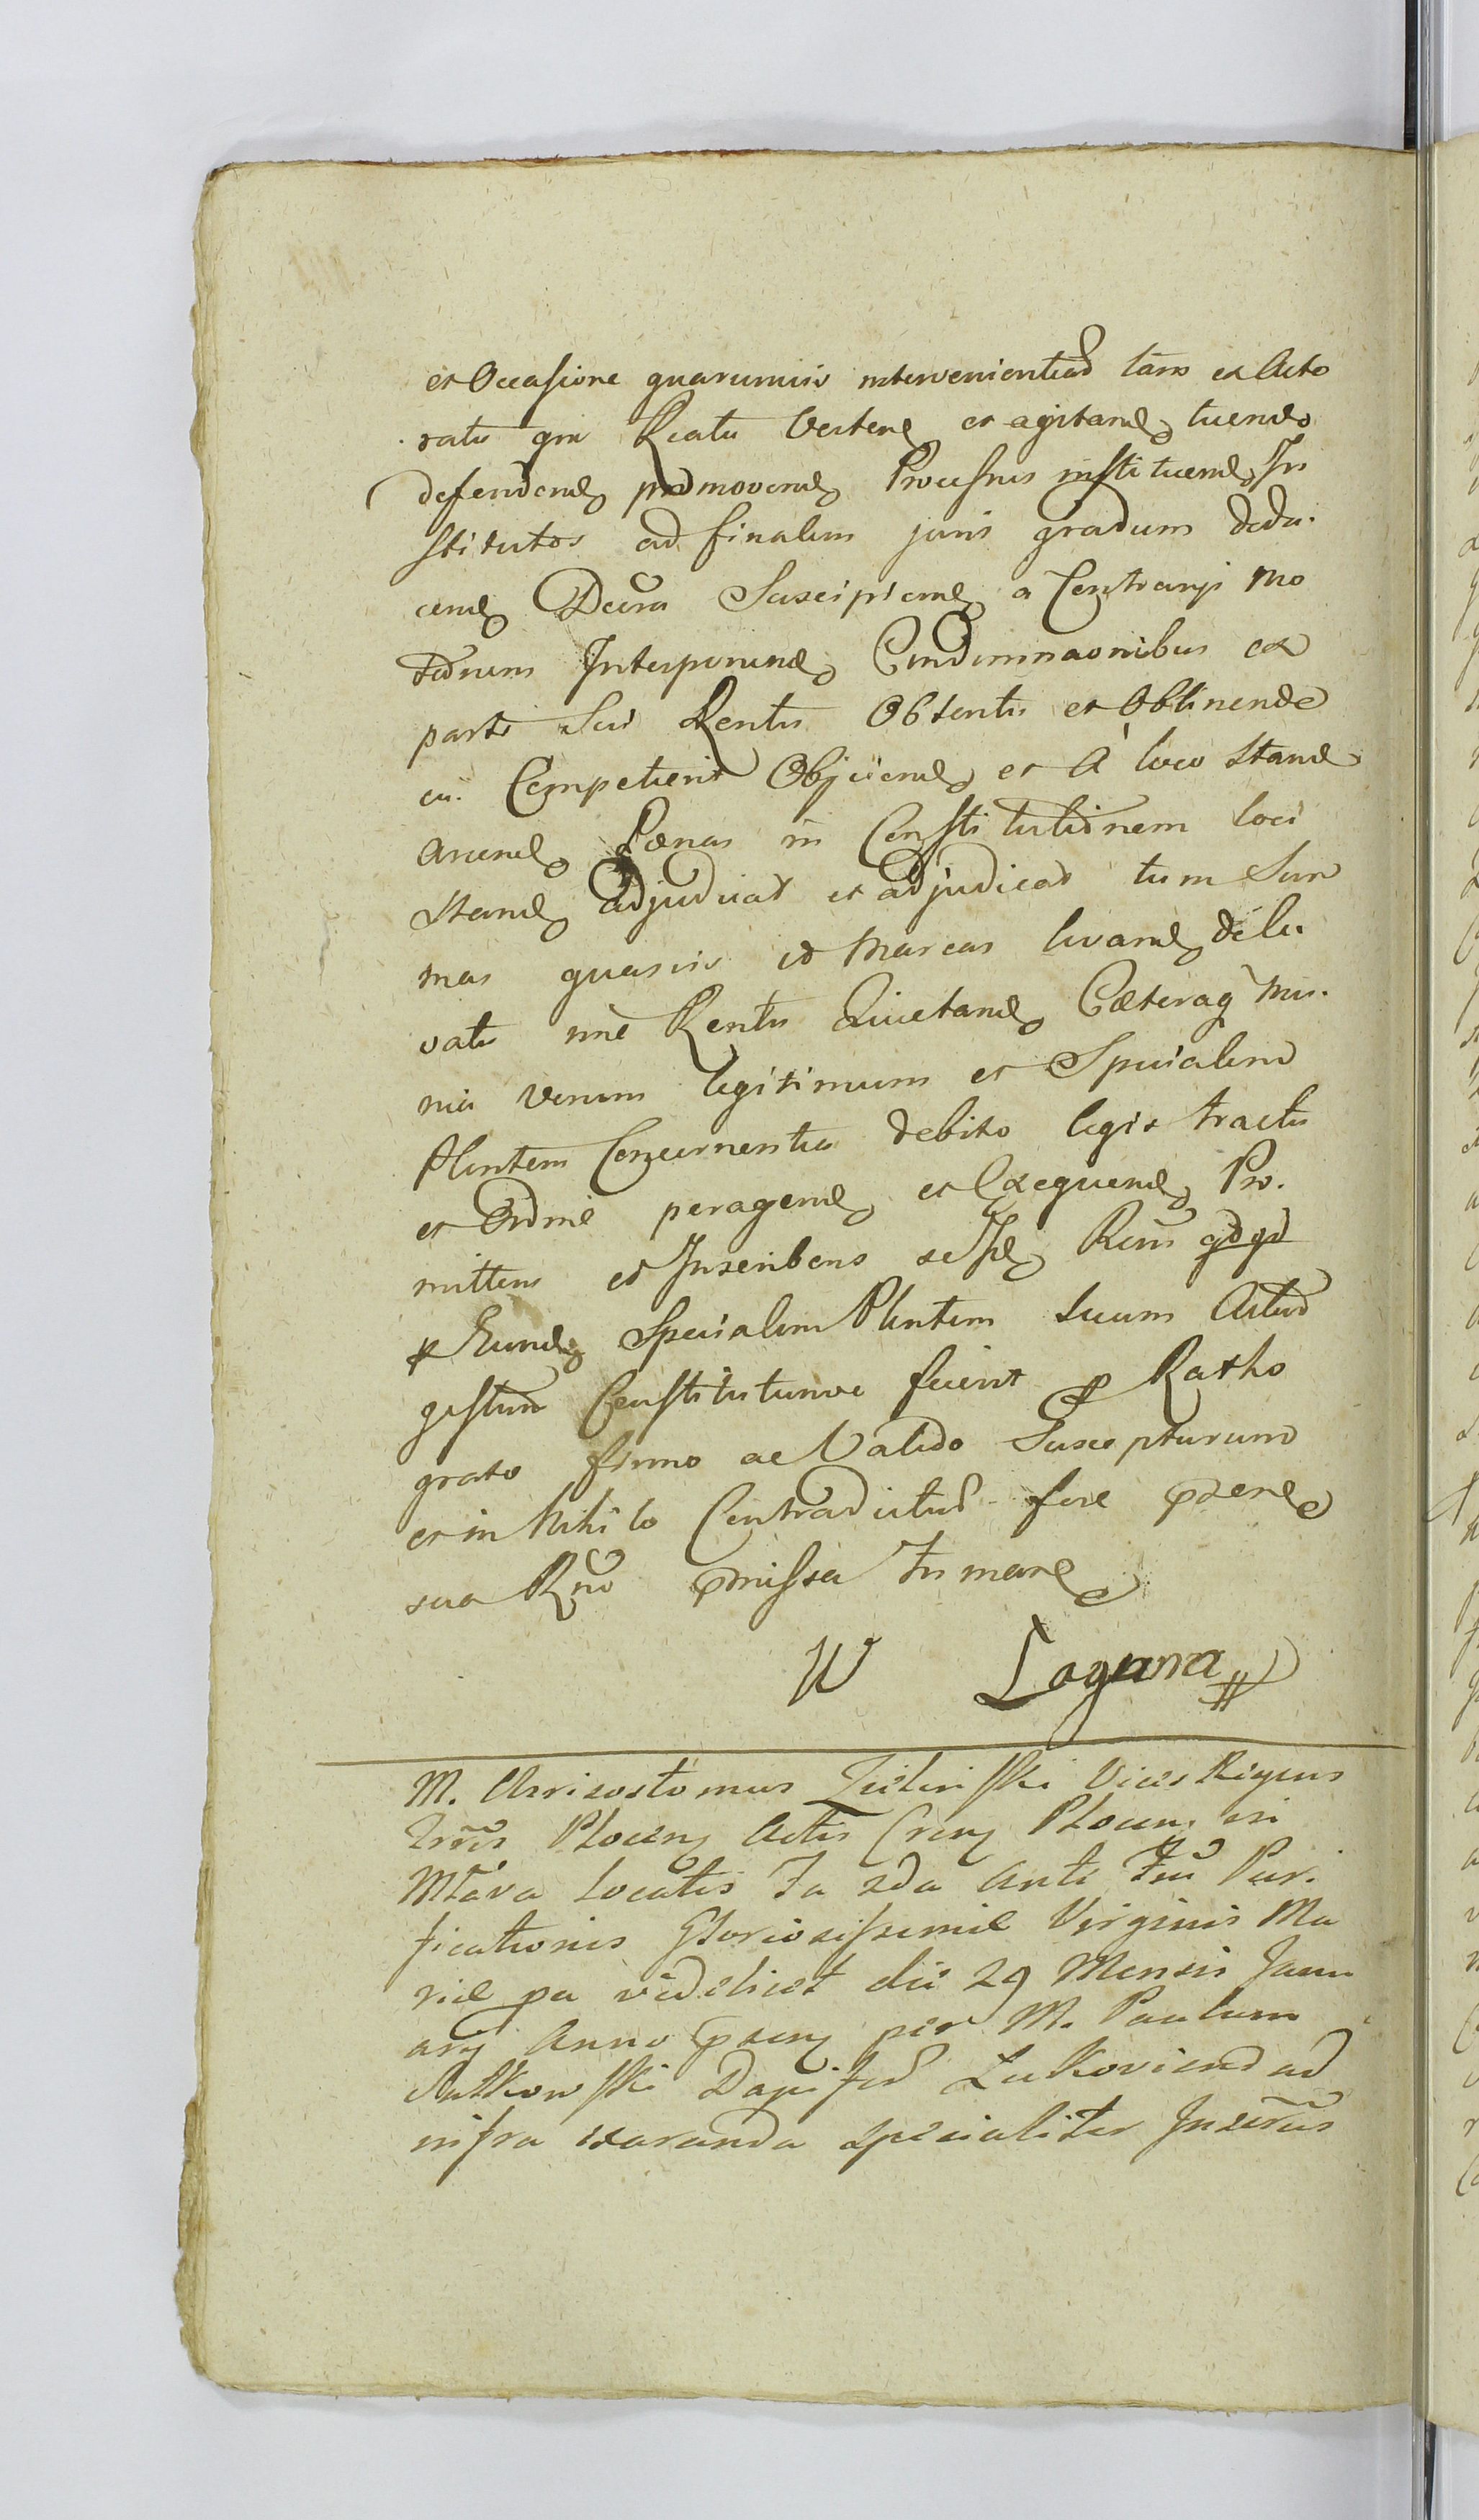 et Occasione quarumvis intervenientiũ tam ex Acto
ratu qm Reatu Verten̄ et agitan̄ tuendo
defenden̄ promoven̄ Processus instituen̄ In
stitutos ad finalem juris gradum dedu.
cen̄ Decra Suscipien̄ a Contrarys Mo
tionem Interponen̄ Condemnaonibus ex
parte Sui Rentis Obtentis et Obtinendis
cu. Competierit Objicien̄ et A loco Standi
arcen̄ Pœnas in Constitutionem loci
Stan̄ adjudicat et adjudicad tum Sum
mas quasvis et Marcas levan̄ de le.
vatis nne Rentis Quietan̄ Cæteraq mu.
nia verum legitimum et Specialem
Plentem Concernentia debito legis tractu
et Ordine peragen̄ et Exequen̄ Pro.
mittens et Inscribens se Rem qdqd
Eund Specialem Plentem suum Actũ
gestum Constitutumve fuerit p Ratho
grato firmo ac Valido Suscepturum
et in Nihilo Contradicturũ fore psen
sua Rno pmissa In mane
W Laguna
M. Chrisostomus Zieliński Vices Regens
Trris Plocen Actis Cren Plocen. in
Mława locatis Fa 2da Ante Ftũ Puri
ficationis Gloriosissimæ Virginis Ma
riæ pa videlicet die 29 Mensis Janu
arÿ Anno psen per M. Paulum
Rutkowski Dapiferũ Zukroviend ad
infra exaranda specialiter Inserus